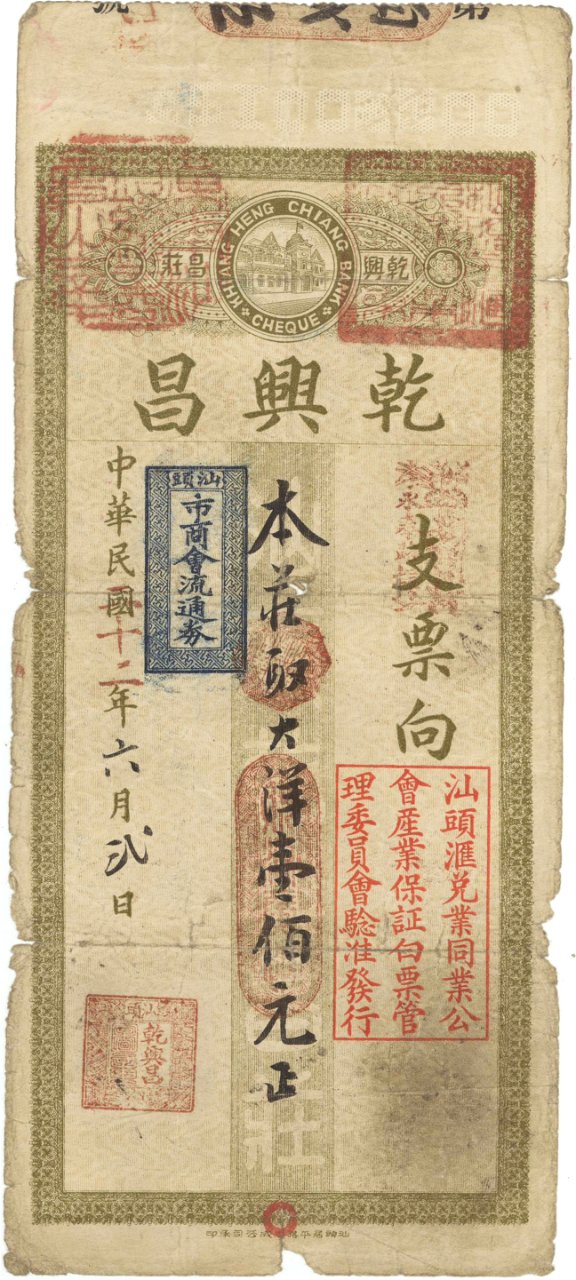 第 號
KHIANG HENG CHIANG BANK
CHEQUE
乾興
昌莊
乾興昌
支票向
汕頭滙兌業同業公
會產業保証白票管
理委員會騐准發行
本莊取大洋壹佰元正
汕頭
市商會流通券
中華民國二十二年六月弍日
汕頭
乾興昌